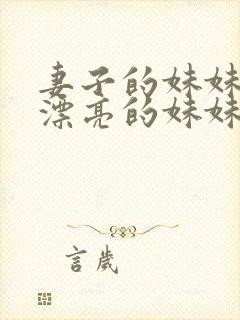 妻子的妹妹
漂亮的妹妹
言歲